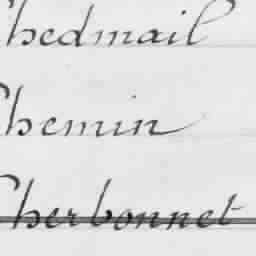 Chedmail
Chemin
Cherbonnet